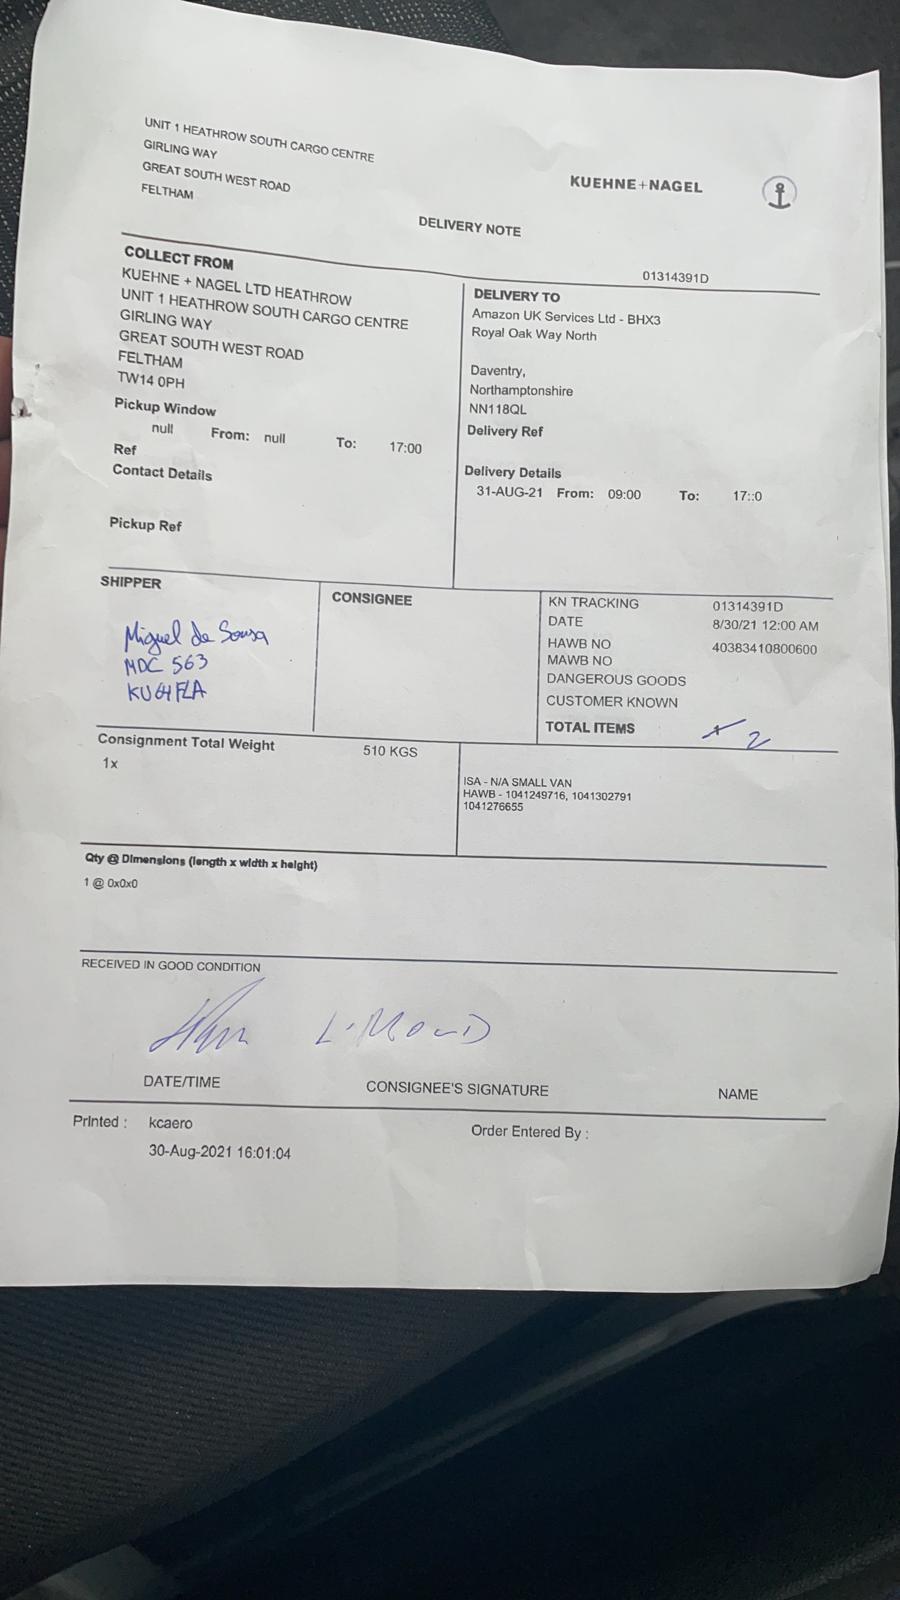 UNIT 1 HEATHROW SOUTH CARGO CENTRE
GIRLING WAY
GREAT SOUTH WEST ROAD
FELTHAM
KUEHNE+NAGEL
DELIVERY NOTE
01314391D
COLLECT FROM
KUEHNE + NAGEL LTD HEATHROW
UNIT 1 HEATHROW SOUTH CARGO CENTRE
GIRLING WAY
GREAT SOUTH WEST ROAD
FELTHAM
TW14 0PH
Pickup Window
null From: null To: 17:00
Ref
Contact Details
Pickup Ref
DELIVERY TO
Amazon UK Services Ltd - BHX3
Royal Oak Way North
Daventry,
Northamptonshire
NN118QL
Delivery Ref
Delivery Details
31-AUG-21 From: 09:00 To: 17::0
SHIPPER
Miguel de Sousa
MDC 563
KU64FLA
CONSIGNEE
KN TRACKING 01314391D
DATE 8/30/21 12:00 AM
HAWB NO 40383410800600
MAWB NO
DANGEROUS GOODS
CUSTOMER KNOWN
TOTAL ITEMS 2
Consignment Total Weight 510 KGS
1x
ISA - N/A SMALL VAN
HAWB - 1041249716, 1041302791
1041276655
Qty @ Dimensions (length x width x height)
1 @ 0x0x0
RECEIVED IN GOOD CONDITION
DATE/TIME CONSIGNEE'S SIGNATURE NAME
Printed : kcaero
30-Aug-2021 16:01:04
Order Entered By :